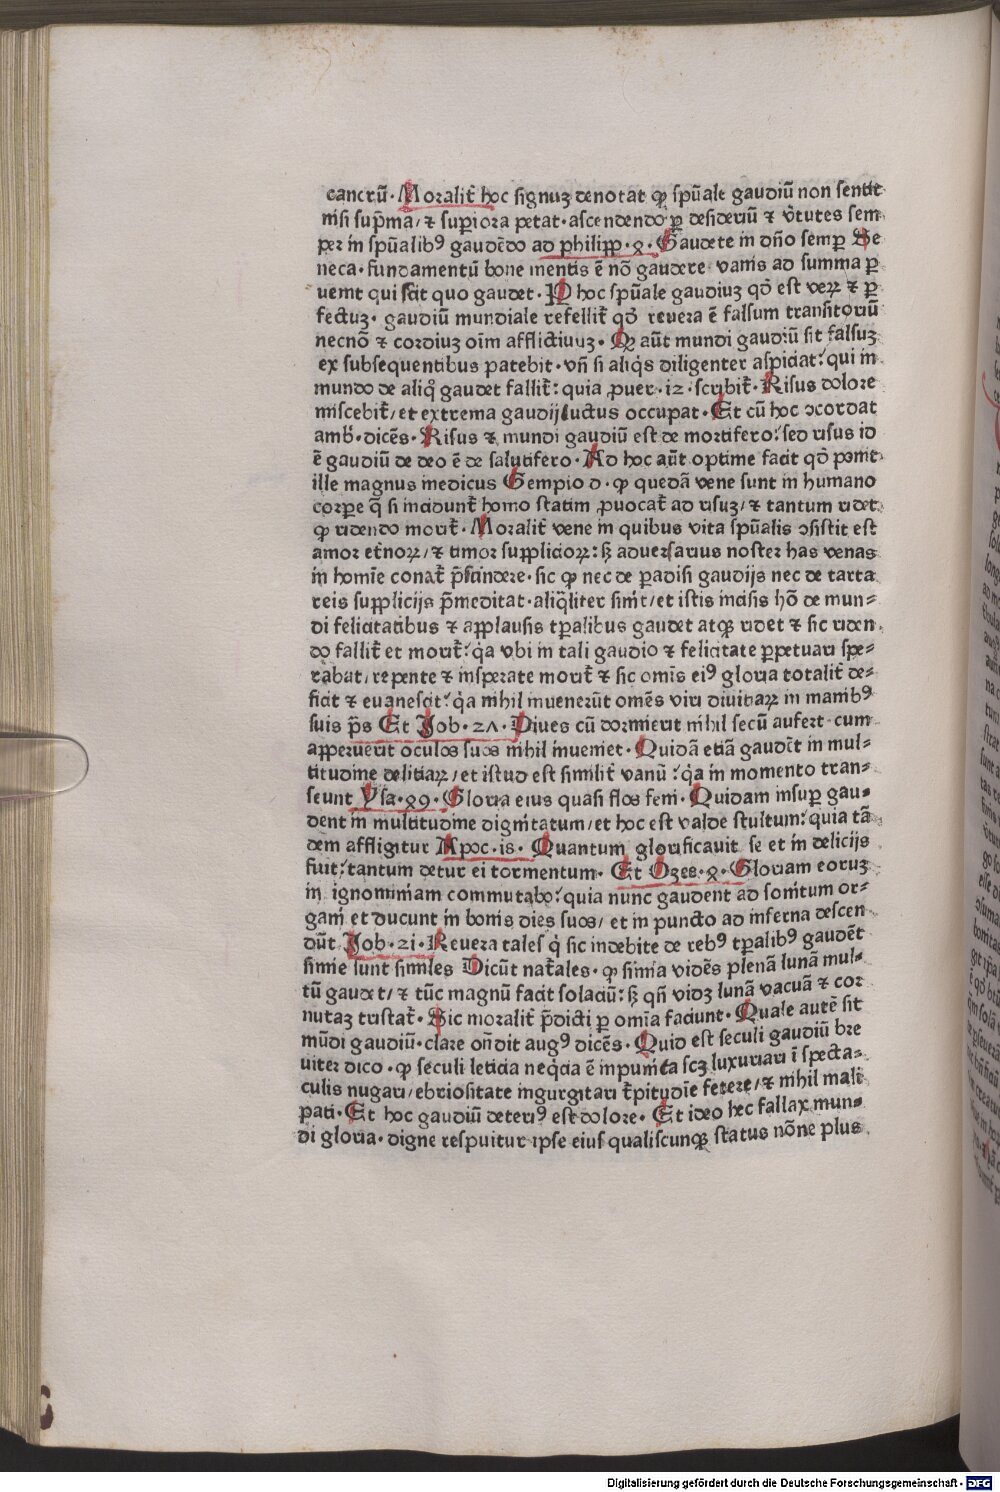 cancrū· Moralit̄ hoc signuꝫ denotat ꝙ spūale gaudiū non sentit
nisi sup̄ma/ ⁊ superiora petat· ascendendo ꝑ desideriū ⁊ v̄tutes sem
per in spūalibꝰ gaudēdo ad philipp·ꝝ· Gaudete in dn̄o semꝑ Se
neca· fundamentū bone mentis ē nō gaudere vanis ad summa ꝑ
uenit qui scit quo gaudet· Id hoc spūale gaudiuꝫ qd̄ est veꝝ ⁊ ꝑ
fectuꝫ· gaudiū mundiale refellit̄ qd̄ reuera ē falsum transitoriū
necnō ⁊ cordiuꝫ oīm afflictiuuꝫ· Qꝫ aūt mundi gaudiū sit falsuꝫ
ex subsequentibus patebit· vn̄ si aliq̇s diligenter aspiciat: qui in
mundo de aliq̊ gaudet fallit̄: quia ꝓuer·12· scribit̄· Risus dolore
miscebit̄/ et extrema gaudij luctus occupat· Et cū hoc ꝯcordat
amb̄· dicēs· Risus ⁊ mundi gaudiū est de mortifero: sed risus id
ē gaudiū de deo ē de salutifero· Ad hoc aūt optime facit qd̄ ponit
ille magnus medicus Gempio d· ꝙ quedā vene sunt in humano
corpe q̄ si incidunt̄ homo statim ꝓuocat̄ ad risuꝫ/ ⁊ tantum ridet
ꝙ ridendo morit̄· Moralit̄ vene in quibus vita spūalis ꝯsistit est
amor et̄noꝝ/ ⁊ timor suppliciоꝝ: sꝫ aduersarius noster has venas
in homīe conat̄ p̄scindere· sic ꝙ nec de paradisi gaudijs nec de tarta
reis supplicijs p̄meditat· aliq̇liter sinit/ et istis incisis hō de mun⸗
di felicitatibus ⁊ applausis tꝑalibus gaudet atqꝫ ridet ⁊ sic riden
do fallit̄ et morit̄: q̇a vbi in tali gaudio ⁊ felicitate ꝑpetuari spe⸗
rabat/ repente ⁊ insperate morit̄ ⁊ sic omīs eiꝰ gloria totalit̄ de⸗
ficit ⁊ euanescit: q̇a nihil inuenerūt omēs viri diuitiaꝝ in manibꝰ
suis p̄s Et Job·27· Diues cū dormierit nihil secū aufert cum
apperuerit oculos suos nihil inueniet· Quidā etiā gaudēt in mul⸗
titudine delitiaꝝ/ et istud est similit̄ vanū: q̇a in momento tran⸗
seunt Ysa·ꝝ9· Gloria eius quasi flos feni· Quidam insuꝑ gau⸗
dent in multitudine dignitatum/ et hoc est valde stultum: quia tā
dem affligitur Apoc·18· Quantum glorificauit se et in delicijs
fuit: tantum detur ei tormentum· Et Ozee·ꝝ· Gloriam eoruꝫ
in ignominiam commutabo: quia nunc gaudent ad sonitum or⸗
gani et ducunt in bonis dies suos/ et in puncto ad inferna descen
dūt Job·21· Reuera tales q̇ sic indebite de rebꝰ tꝑalibꝰ gaudēt
simie sunt similes Dicūt nat̄ales· ꝙ simia vidēs plenā lunā mul⸗
tū gaudet/ ⁊ tūc magnū facit solaciū: sꝫ qn̄ vidꝫ lunā vacuā ⁊ cor
nutaꝫ tristat̄· Sic moralit̄ p̄dicti ꝑ omīa faciunt· Quale autē sit
mūdi gaudiū· clare on̄dit augꝰ dicēs· Quid est seculi gaudiū bre
uiter dico· ꝙ seculi leticia neq̇cia ē impunita scꝫ luxuriari ī specta⸗
culis nugari/ ebriositate ingurgitari t̄pitudīe fetere/ ⁊ nihil mali
pati· Et hoc gaudiū deteriꝰ est dolore· Et ideo hec fallax mun⸗
di gloria· digne respuitur ipse eius qualiscunqꝫ status nōne plus
Digitalisierung gefördert durch die Deutsche Forschungsgemeinschaft · DFG